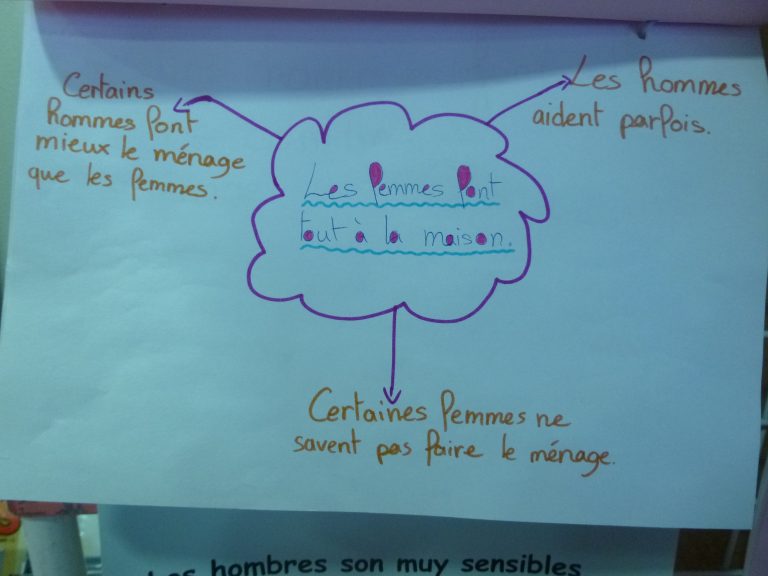 Certains
hommes font
mieux le ménage
que les femmes.
Les hommes
aident parfois.
Les femmes font
tout à la maison.
Certaines femmes ne
savent pas faire le ménage.
hombres son muy sensibles